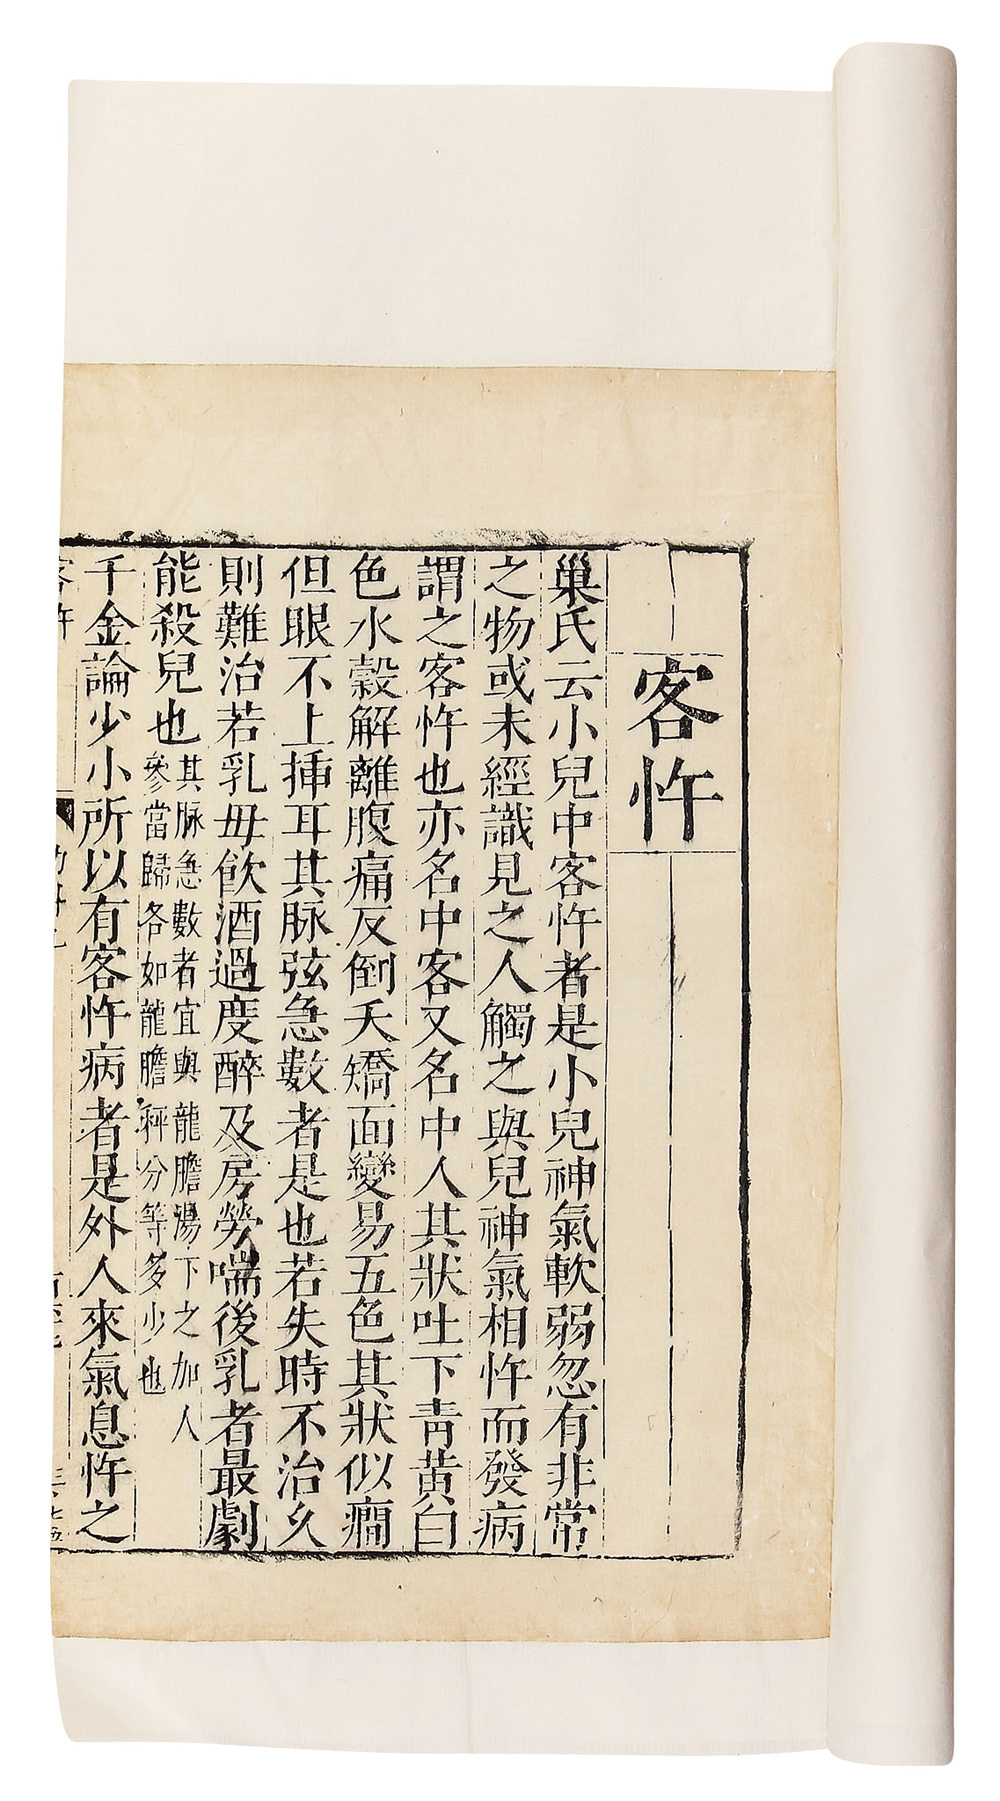 客忤
巢氏云小兒中客忤者是小兒神氣軟弱忽有非常
之物或未經識見之人觸之與兒神氣相忤而發病
謂之客忤也亦名中客又名中人其狀吐下青黃白
色水穀解離腹痛反倒夭矯面變易五色其狀似癇
但眼不上揷耳其脉弦急數者是也若失時不治久
則難治若乳母飲酒過度醉及房勞喘後乳者最劇
能殺兒也其脉急數者宜與龍膽湯下之加人
參當歸各如龍膽秤分等多少也
千金論少小所以有客忤病者是外人來氣息忤之
客忤